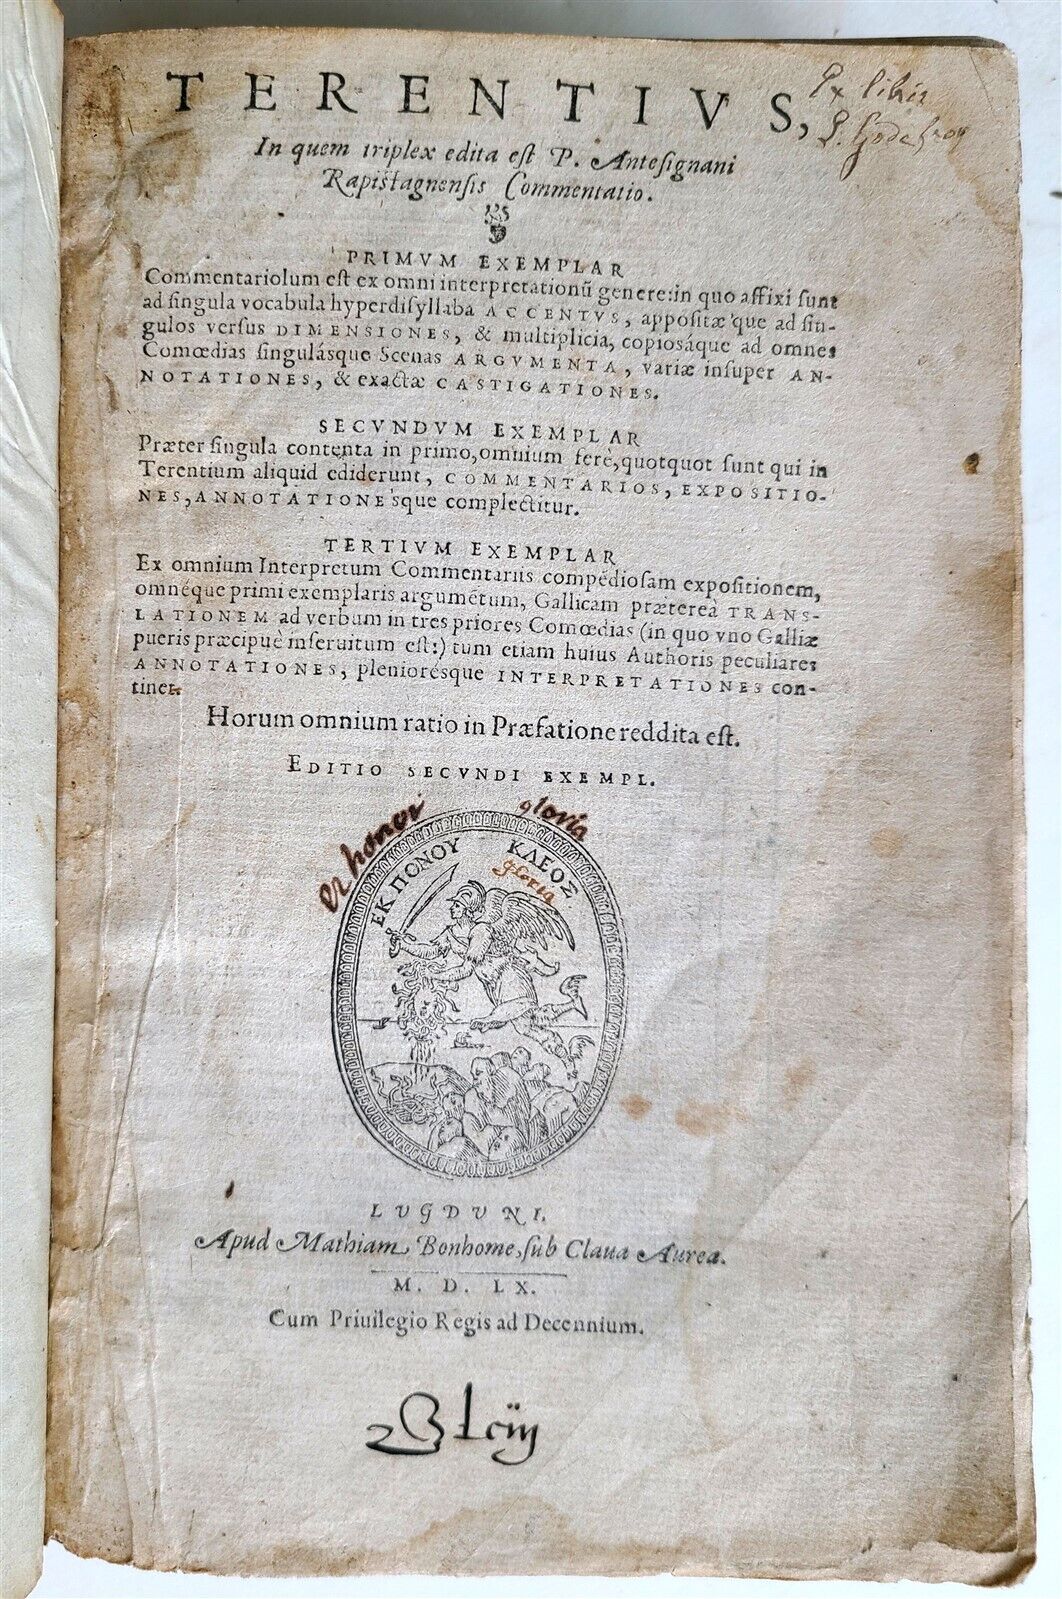 TERENTIVS,
Ex libris
In quem triplex edita est P. Antesignani
Rapistagnensis Commentatio.
PRIMVM EXEMPLAR
Commentariolum est ex omni interpretationū genere: in quo affixi sunt
ad singula vocabula hyperdisyllaba ACCENTVS, appositæ'que ad sin-
gulos versus DIMENSIONES, & multiplicia, copiosáque ad omnes
Comœdias singulásque Scenas ARGVMENTA, variæ insuper AN-
NOTATIONES, & exactæ CASTIGATIONES.
SECVNDVM EXEMPLAR
Præter singula contenta in primo, omnium ferè, quotquot sunt qui in
Terentium aliquid ediderunt, COMMENTARIOS, EXPOSITIO-
NES, ANNOTATIONE'sque complectitur.
TERTIVM EXEMPLAR
Ex omnium Interpretum Commentariis compēdiosam expositionem,
omnéque primi exemplaris argumētum, Gallicam præterea TRANS-
LATIONEM ad verbum in tres priores Comœdias (in quo vno Galliæ
pueris præcipuè inseruitum est:) tum etiam huius Authoris peculiares
ANNOTATIONES, pleniorésque INTERPRETATIONES con-
tinet.
Horum omnium ratio in Præfatione reddita est.
EDITIO SECVNDI EXEMPL.
honor gloria
ΕΚ ΠΟΝΟΥ ΚΛΕΟΣ
gloria
LVGDVNI,
Apud Mathiam Bonhome, sub Claua Aurea.
M. D. LX.
Cum Priuilegio Regis ad Decennium.